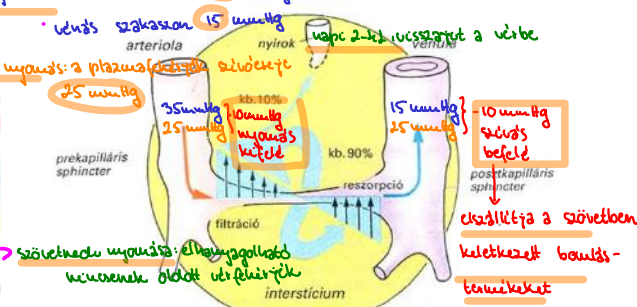 • vénás szakaszon 15 mmHg
arteriola
nyirok
napi 2-4 l visszajut a vérbe
venula
nyomás: a plazmafehérjék szívóereje
25 mmHg
35 mmHg
25 mmHg
kb. 10%
10 mmHg
nyomás
kifelé
15 mmHg
25 mmHg
-10 mmHg
szívás
befelé
kb. 90%
prekapilláris
sphincter
reszorpció
posztkapilláris
sphincter
filtráció
elszállítja a szövetben
keletkezett bomlás-
termékeket
szövetnedv nyomása: elhanyagolható
nincsenek oldott vérfehérjék
interstícium